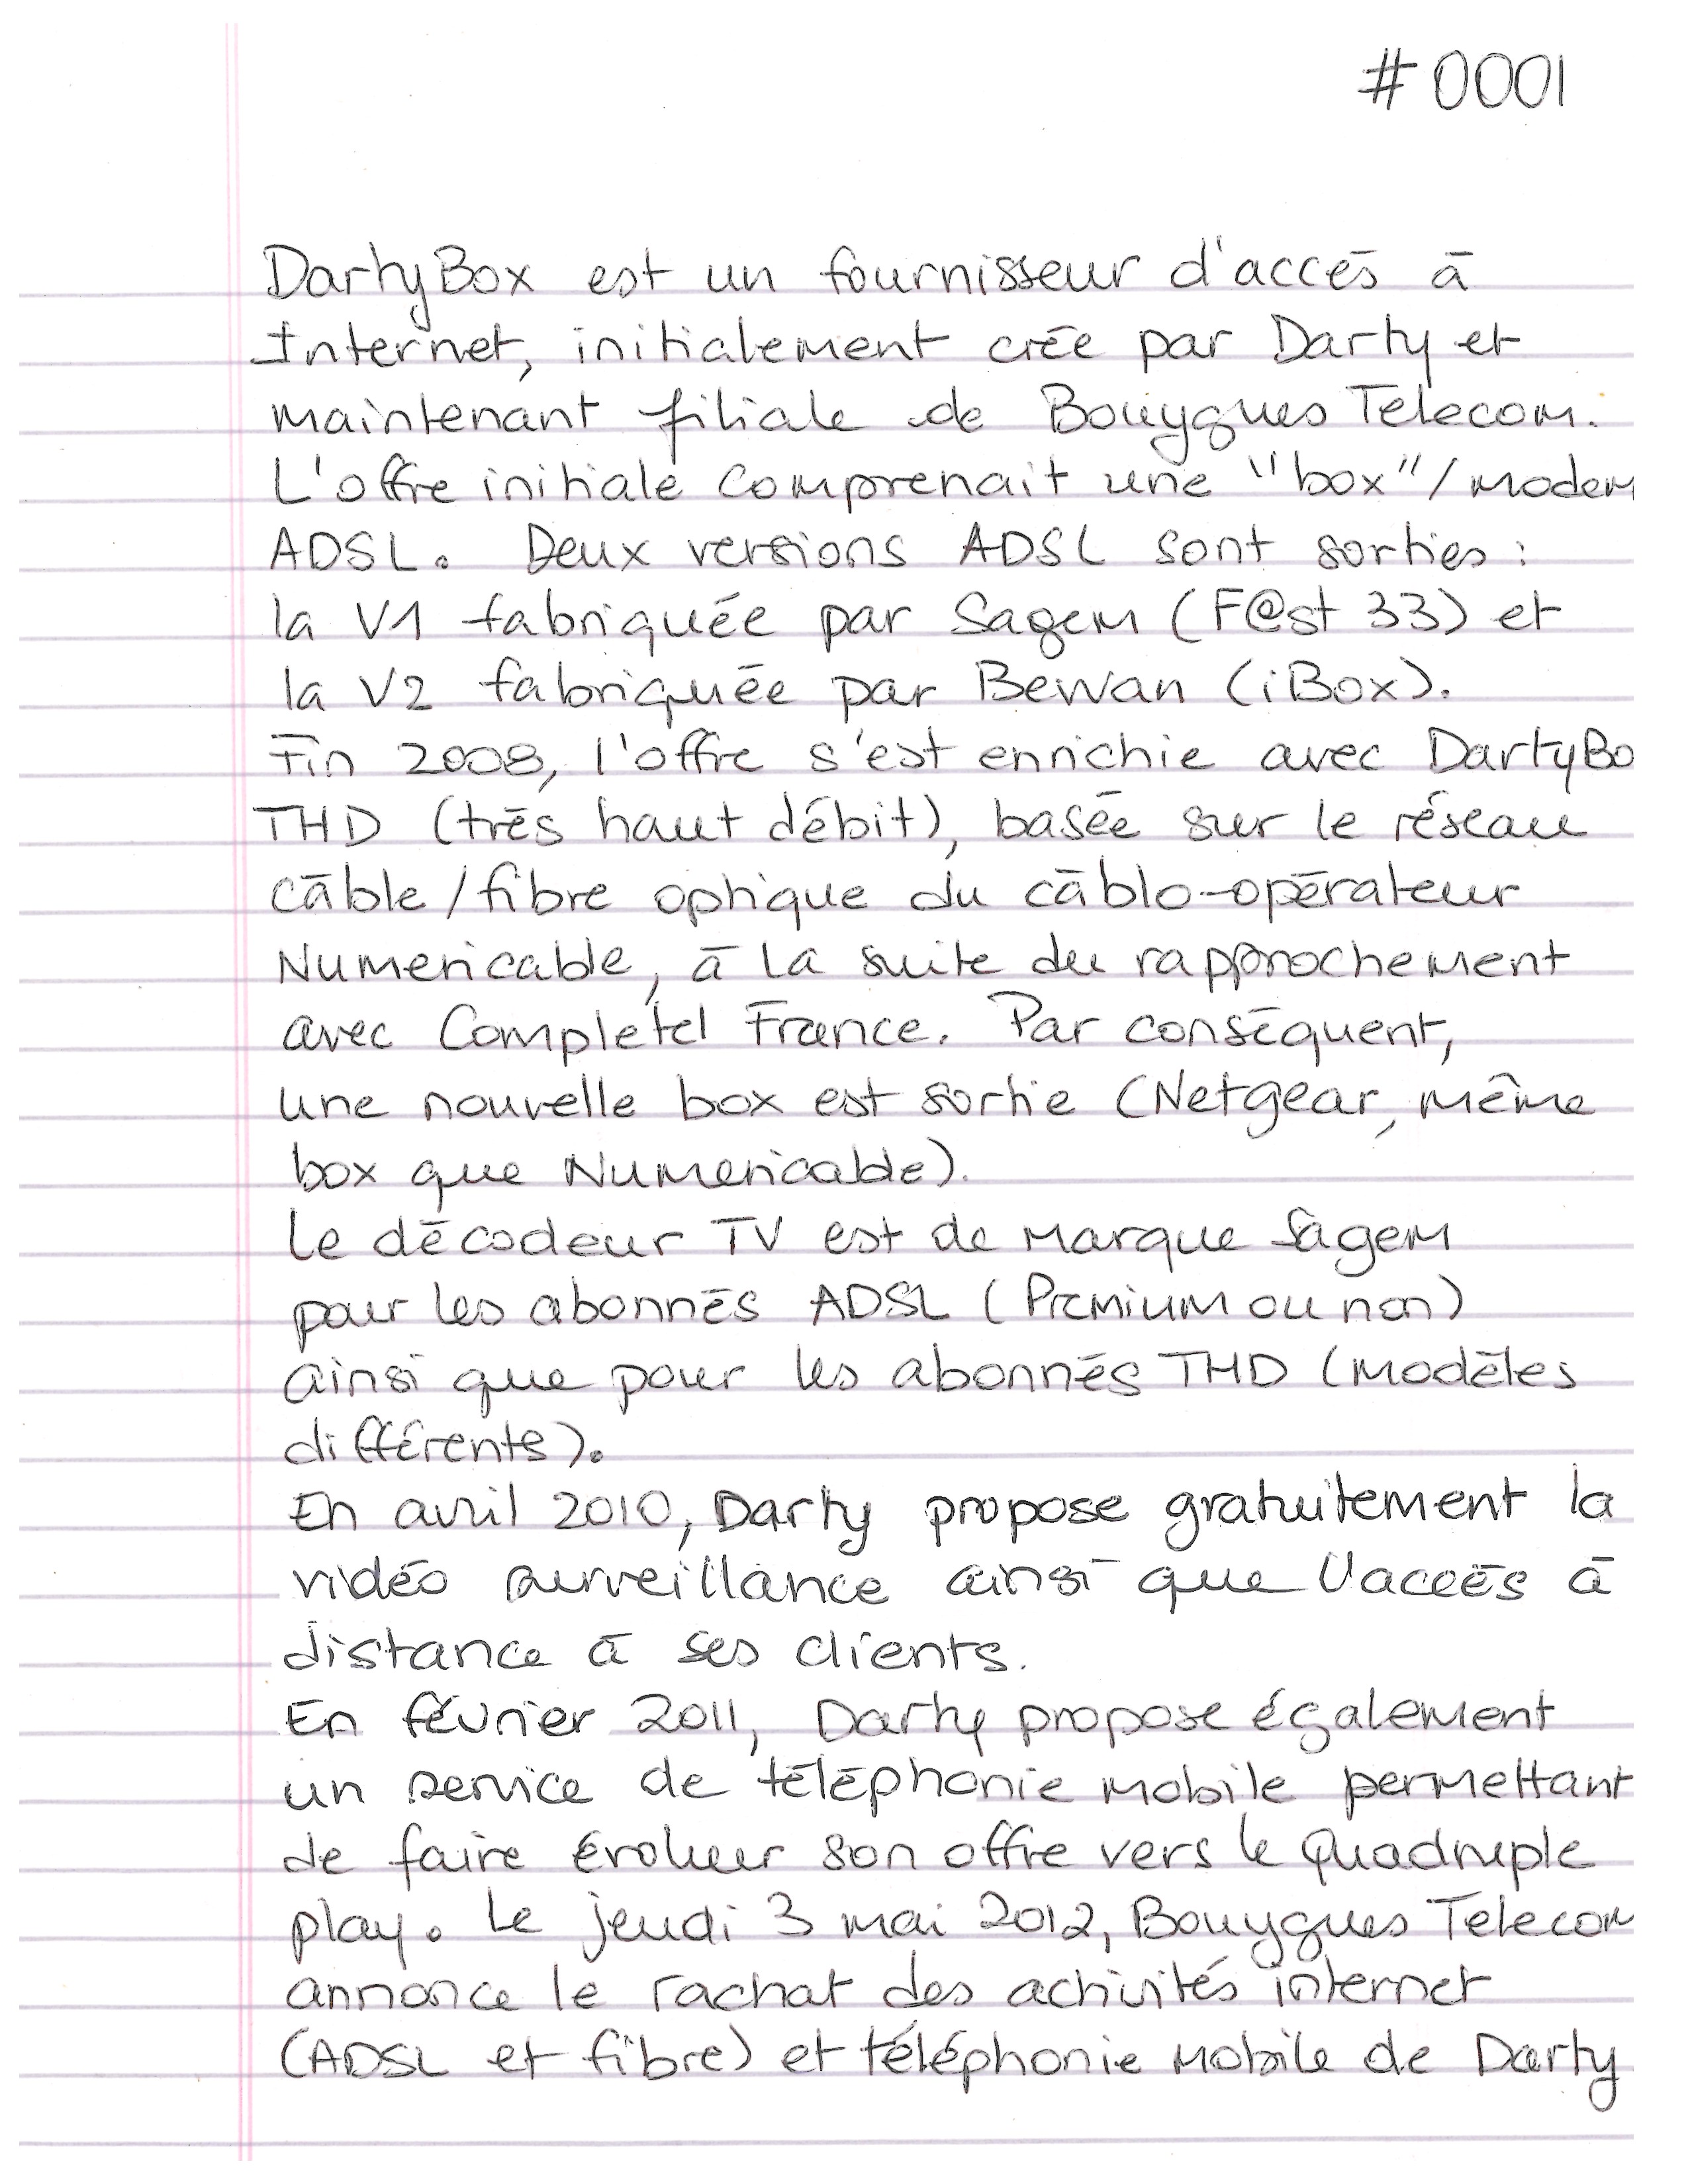 #0001
DartyBox est un fournisseur d'accès à
Internet, initialement créé par Darty et
maintenant filiale de Bouygues Telecom.
L'offre initiale comprenait une "box"/modem
ADSL. Deux versions ADSL sont sorties :
la V1 fabriquée par Sagem (F@st 33) et
la V2 fabriquée par Bewan (iBox).
Fin 2008, l'offre s'est enrichie avec DartyBo
THD (très haut débit), basée sur le réseau
câble/fibre optique du câblo-opérateur
Numericable, à la suite du rapprochement
avec Completel France. Par conséquent,
une nouvelle box est sortie (Netgear, même
box que Numericable).
Le décodeur TV est de marque Sagem
pour les abonnés ADSL (Premium ou non)
ainsi que pour les abonnés THD (modèles
différents).
En avril 2010, Darty propose gratuitement la
vidéo surveillance ainsi que l'accès à
distance à ses clients.
En février 2011, Darty propose également
un service de téléphonie mobile permettant
de faire évoluer son offre vers le Quadruple
play. Le jeudi 3 mai 2012, Bouygues Telecom
annonce le rachat des activités internet
(ADSL et fibre) et téléphonie mobile de Darty